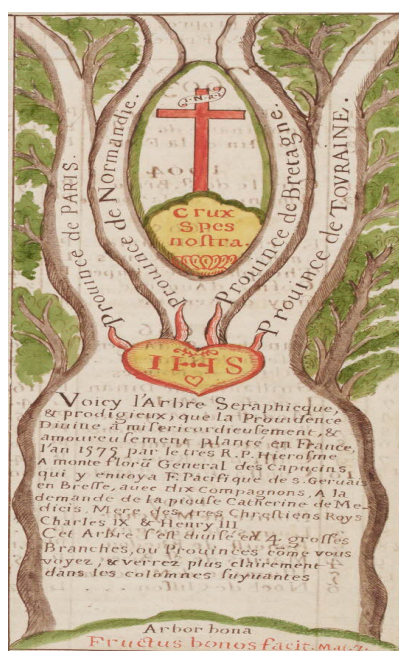 Prouince de PARIS.
Prouince de Normandie.
Prouince de Bretagne.
Prouince de TOVRAINE.
I.N.R.I.
Crux
Spes
nostra.
IHS
Voicy l'Arbre Seraphicque,
& prodigieux, que la Prouidence
Diuine, a misericordieusement, &
amoureusement planté en France,
l'an 1575 par le tres R.P. Hierosme
A monte florū General des Capucins,
qui y enuoya F. Pacifique de S. Geruais
en Bresse, auec dix Compagnons, A la
demande de la pieuse Catherine de Me-
dicis, Mere des tres Chrestiens Roys
Charles IX & Henry III
Cet Arbre s'est diuisé en 4 grosses
Branches, ou Prouinces cōme vous
voyez, & verrez plus clairement
dans les colomnes suyuantes
Arbor bona
Fructus bonos facit. Mat. 7.